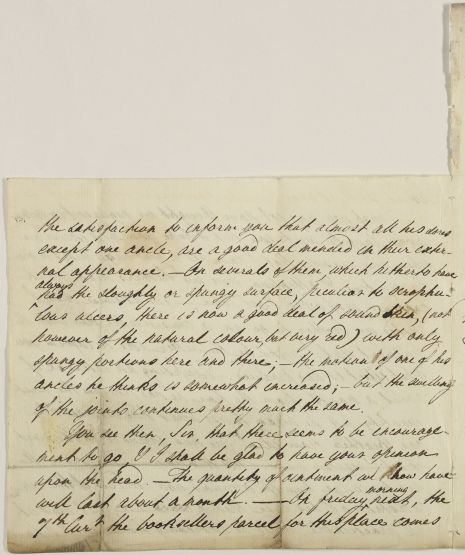 the satisfaction to inform you that almost all his sores
except one ancle, are a good deal mended in their exter-
nal appearance. – On severals of them, which hitherto have
always
had the sloughy or spungy surface, peculiar to scrophu-
lous ulcers, there is now a good deal of sound skin, (not
however of the natural colour, but very red) with only
spungy portions here and there; – the motion of one of his
ancles he thinks is somewhat increased; – but the swelling
of the joints continues pretty much the same.
You see then, Sir, that there seems to be encourage-
ment to go I shall be glad to have your opinion
upon the head. – The quantity of ointment we now have
will last about a month. – On friday morning next, the
7th Curt the booksellers parcel for this place comes